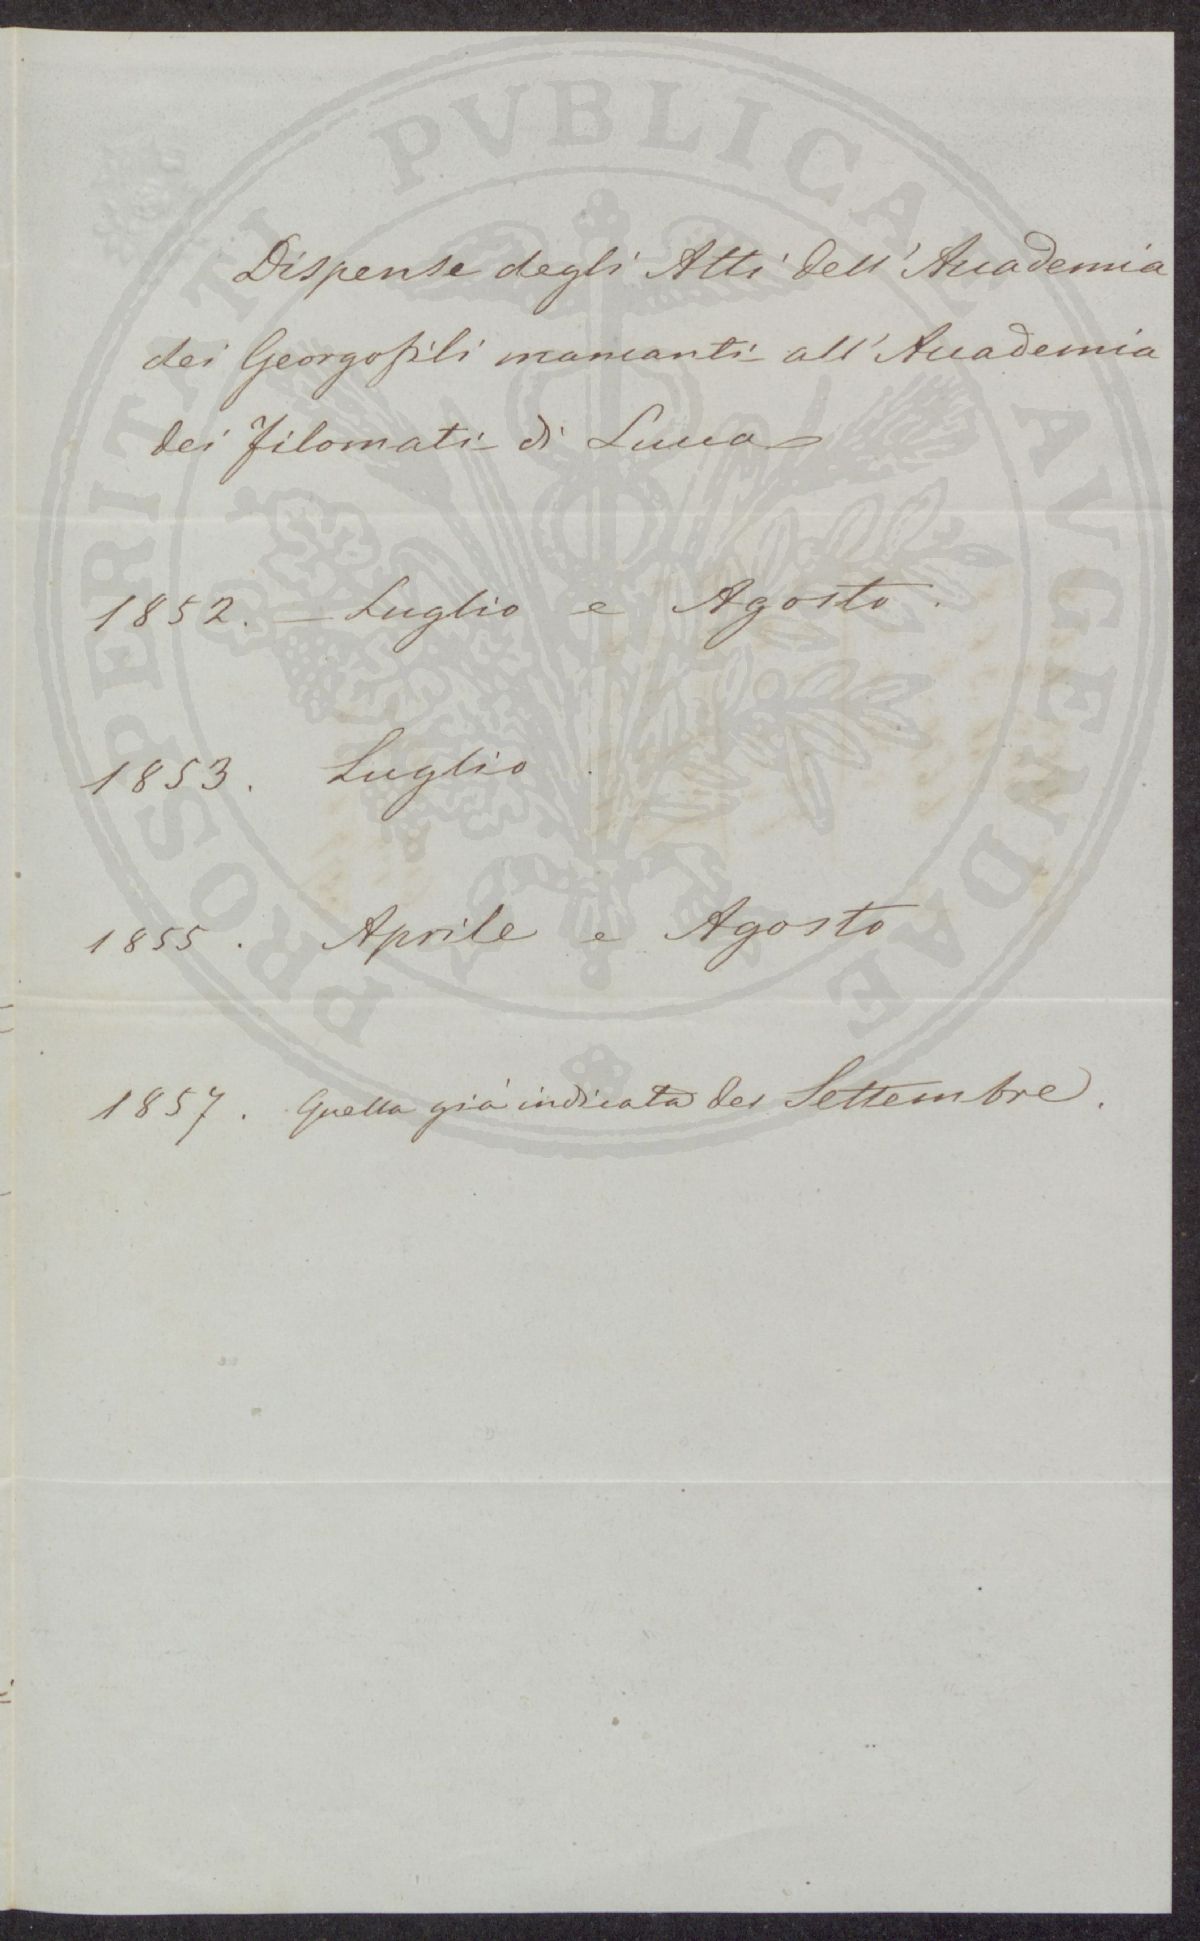 Dispense degli Atti dell'Accademia
dei Georgofili mancanti all'Accademia
dei Filomati di Lucca
1852. = Luglio e Agosto.
1853. Luglio.
1855. Aprile e Agosto
1857. Quella già indicata del Settembre.
PROSPERITATI PVBLICAE AVGENDAE